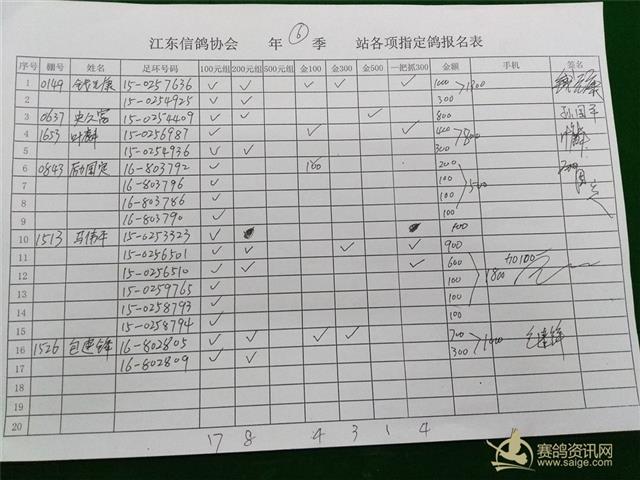 江东信鸽协会 年 ⑥ 季 站各项指定鸽报名表
序号 棚号 姓名 足环号码 100元组 200元组 500元组 金100 金300 金500 一把抓300 金额 手机 签名
1 0149 15-0257636 ✓ ✓ ✓ ✓ ✓ 1000 1300
2 15-0254925 ✓ ✓ 300
3 0637 15-0254409 ✓ ✓ ✓ 800 孙国平
4 1653 叶麟 15-0256987 ✓ ✓ ✓ 400 700
5 15-0254936 ✓ ✓ 300
6 0843 励国定 16-803792 ✓ 100 200
7 16-803796 ✓ 100 500
8 16-803786 ✓ 100
9 16-803790 ✓ 100
10 1513 马伟平 15-0253323 ✓ 100
11 15-0256501 ✓ ✓ ✓ ✓ 900
12 15-0256510 ✓ ✓ ✓ 600 1800 加100
13 15-0259765 ✓ 100
14 15-0258793 ✓ 100
15 15-0258794 ✓ 100
16 1526 包建锋 16-802805 ✓ ✓ ✓ ✓ 700 1000 包建锋
17 16-802809 ✓ ✓ 300
18
19
20
17 8 4 3 1 4
赛鸽资讯网
www.saige.com